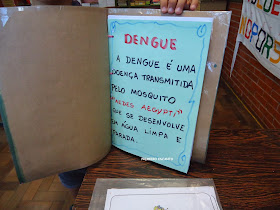 DENGUE
A DENGUE É UMA
DOENÇA TRANSMITIDA
PELO MOSQUITO
"AEDES AEGYPTI"
QUE SE DESENVOLVE
EM ÁGUA LIMPA E
PARADA.